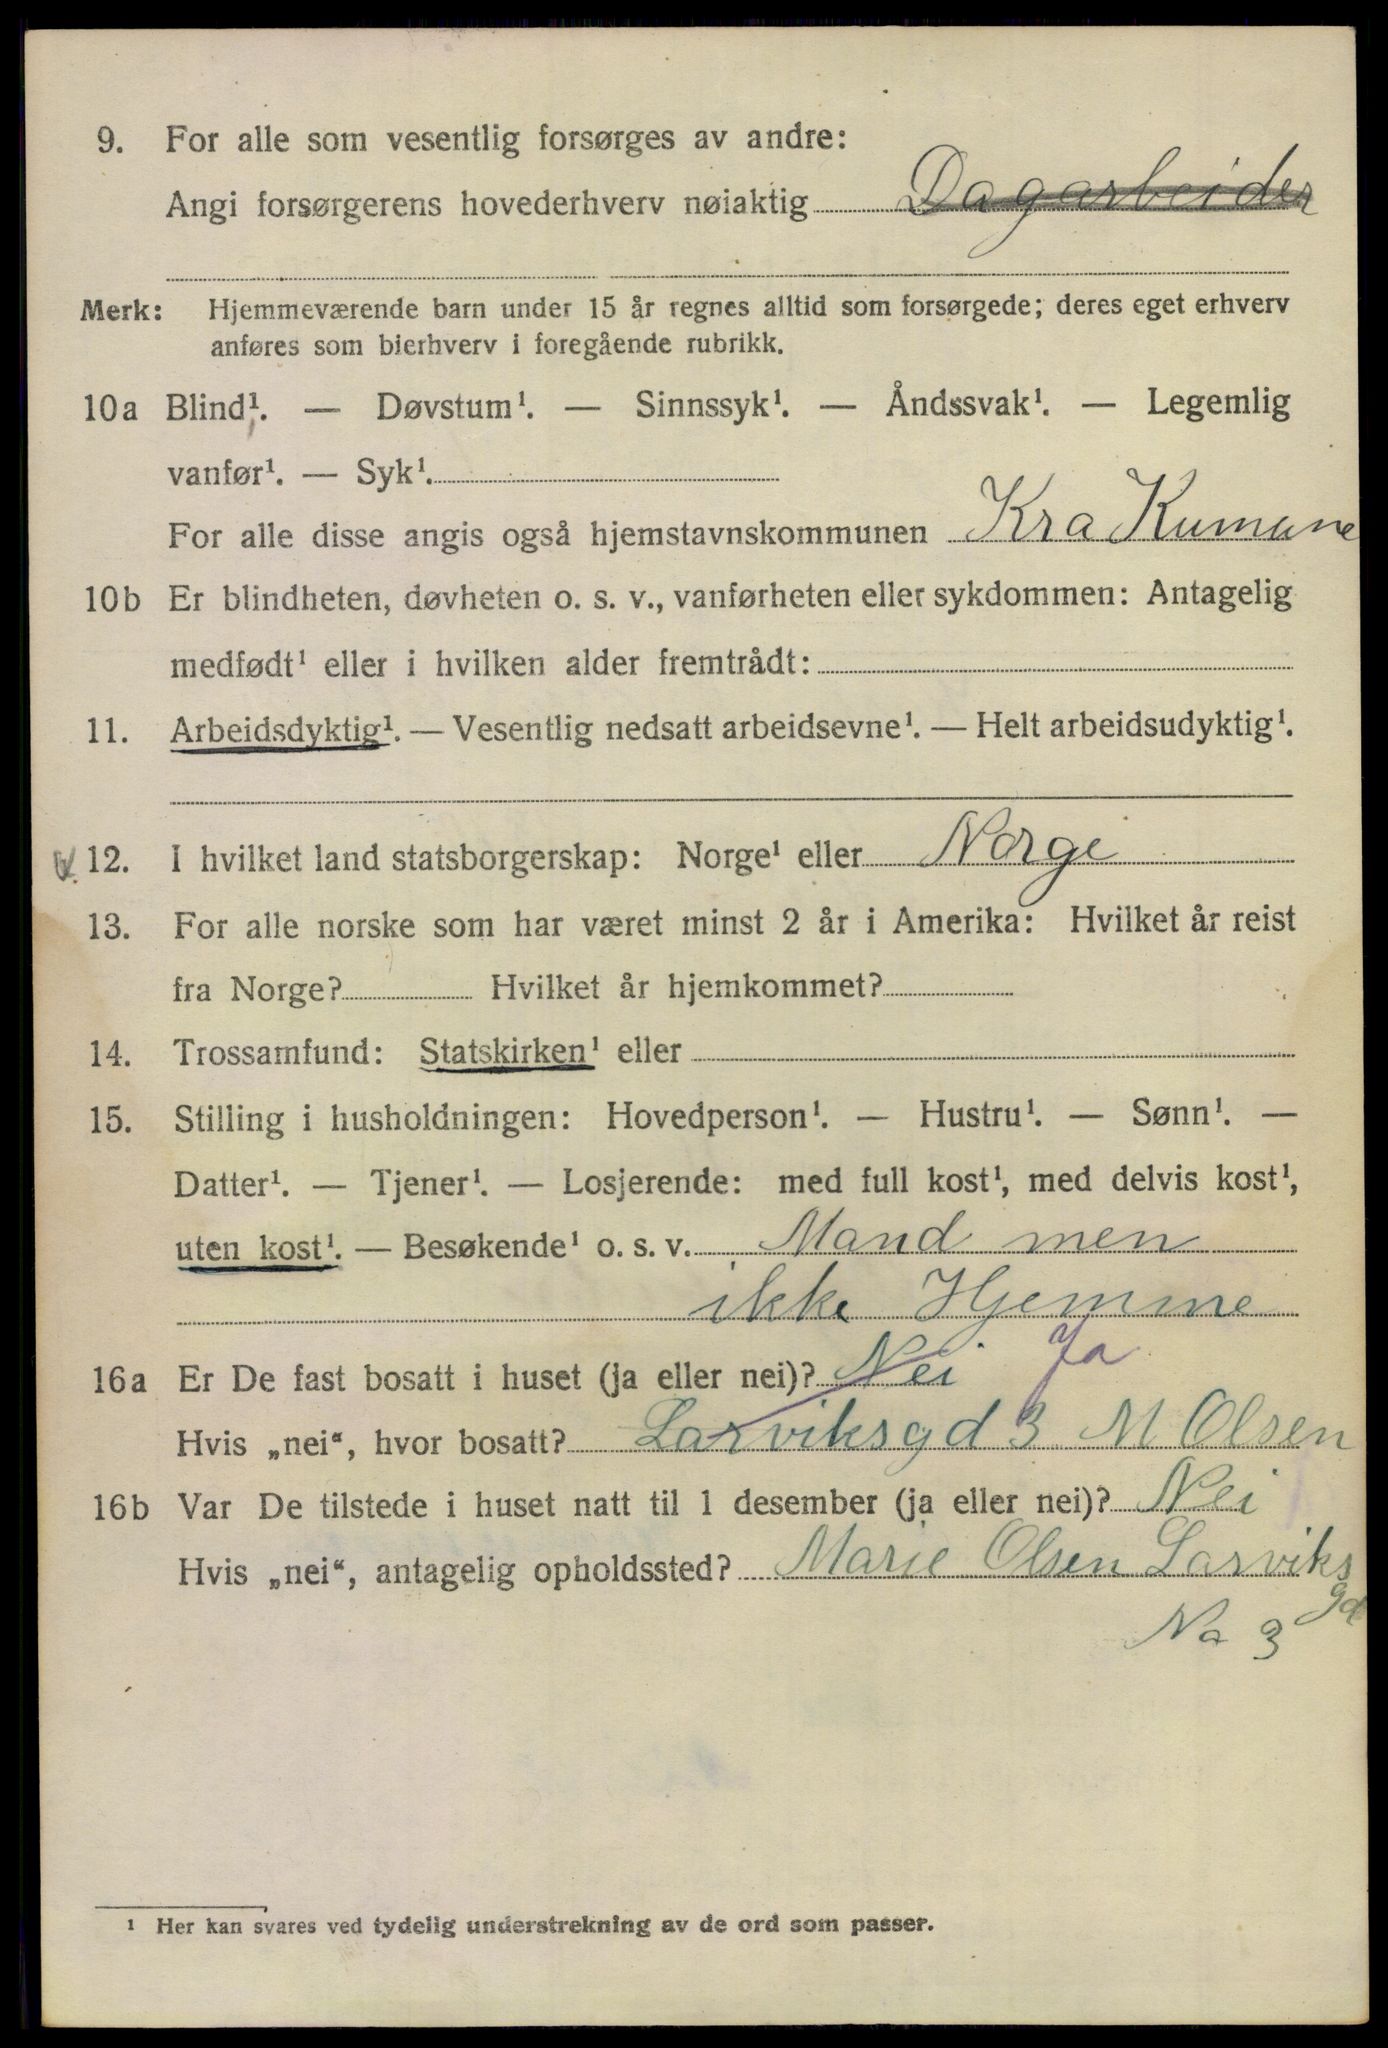 9. For alle som vesentlig forsørges av andre:
Angi forsørgerens hovederhverv nøiaktig Dagarbeider
Merk: Hjemmeværende barn under 15 år regnes alltid som forsørgede; deres eget erhverv
anføres som bierhverv i foregående rubrikk.
10a Blind¹. — Døvstum¹. — Sinnssyk¹. — Åndssvak¹. — Legemlig
vanfør¹. — Syk¹.
For alle disse angis også hjemstavnskommunen Kra Kumune
10b Er blindheten, døvheten o. s. v., vanførheten eller sykdommen: Antagelig
medfødt¹ eller i hvilken alder fremtrådt:
11. Arbeidsdyktig¹. — Vesentlig nedsatt arbeidsevne¹. — Helt arbeidsudyktig¹.
12. I hvilket land statsborgerskap: Norge¹ eller Norge
13. For alle norske som har været minst 2 år i Amerika: Hvilket år reist
fra Norge? Hvilket år hjemkommet?
14. Trossamfund: Statskirken¹ eller
15. Stilling i husholdningen: Hovedperson¹. — Hustru¹. — Sønn¹. —
Datter¹. — Tjener¹. — Losjerende: med full kost¹, med delvis kost¹,
uten kost¹. — Besøkende¹ o. s. v. Mand men
ikke Hjemme
16a Er De fast bosatt i huset (ja eller nei)? Nei Ja
Hvis „nei“, hvor bosatt? Larviksgd 3 M Olsen
16b Var De tilstede i huset natt til 1 desember (ja eller nei)? Nei
Hvis „nei“, antagelig opholdssted? Marie Olsen Larviks
gd
No 3
¹ Her kan svares ved tydelig understrekning av de ord som passer.